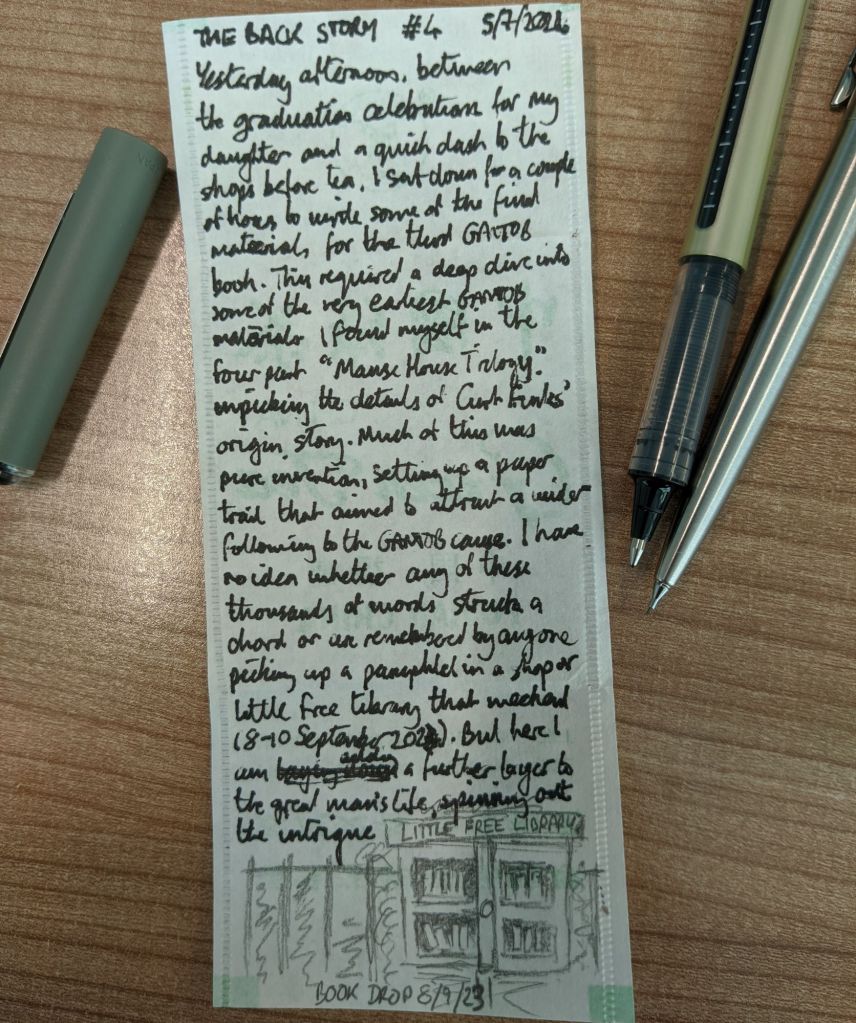 THE BACK STORY #4 5/7/2024
Yesterday afternoon, between
the graduation celebrations for my
daughter and a quick dash to the
shops before tea, I sat down for a couple
of hours to write some of the final
materials for the third GANTOB
book. This required a deep dive into
some of the very earliest GANTOB
materials. I found myself in the
four part "Manse House Trilogy".
unpicking the details of Curt Finks'
origin story. Much of this was
pure invention, setting up a paper
trail that aimed to attract a wider
following to the GANTOB cause. I have
no idea whether any of these
thousands of words struck a
chord or are remembered by anyone
picking up a pamphlet in a shop or
Little Free Library that weekend
(8-10 September 2023). But here I
am adding a further layer to
the great man's life, spinning out
the intrigue
LITTLE FREE LIBRARY
BOOK DROP 8/9/23
PAN